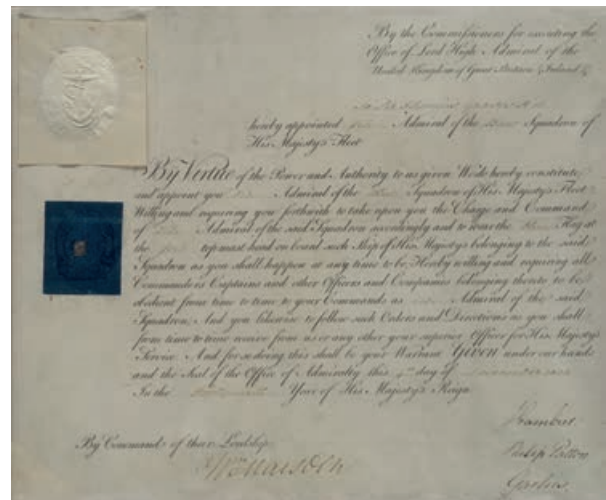 By the Commissioners for executing the
Office of Lord High Admiral of the
United Kingdom of Great Britain & Ireland &c
hereby appointed Admiral of the Squadron of
His Majesty's Fleet
By Virtue of the Power and Authority to us given We do hereby constitute
and appoint you Admiral of the Squadron of His Majesty's Fleet
Willing and requiring you forthwith to take upon you the Charge and Command
of Admiral of the said Squadron accordingly and to wear the Flag at
the topmast head on board such Ship of His Majesty's belonging to the said
Squadron as you shall happen at any time to be Hereby willing and requiring all
Commanders Captains and other Officers and Companies belonging thereto to be
obedient from time to time to your Commands as Admiral of the said
Squadron, And you likewise to follow such Orders and Directions as you shall
from time to time receive from us or any other your superior Officer for His Majesty's
Service. And for so doing this shall be your Warrant GIVEN under our hands
and the Seal of the Office of Admiralty this day of
In the Year of His Majesty's Reign
Gambier
By Command of their Lordships
Philip Patton
Garlies